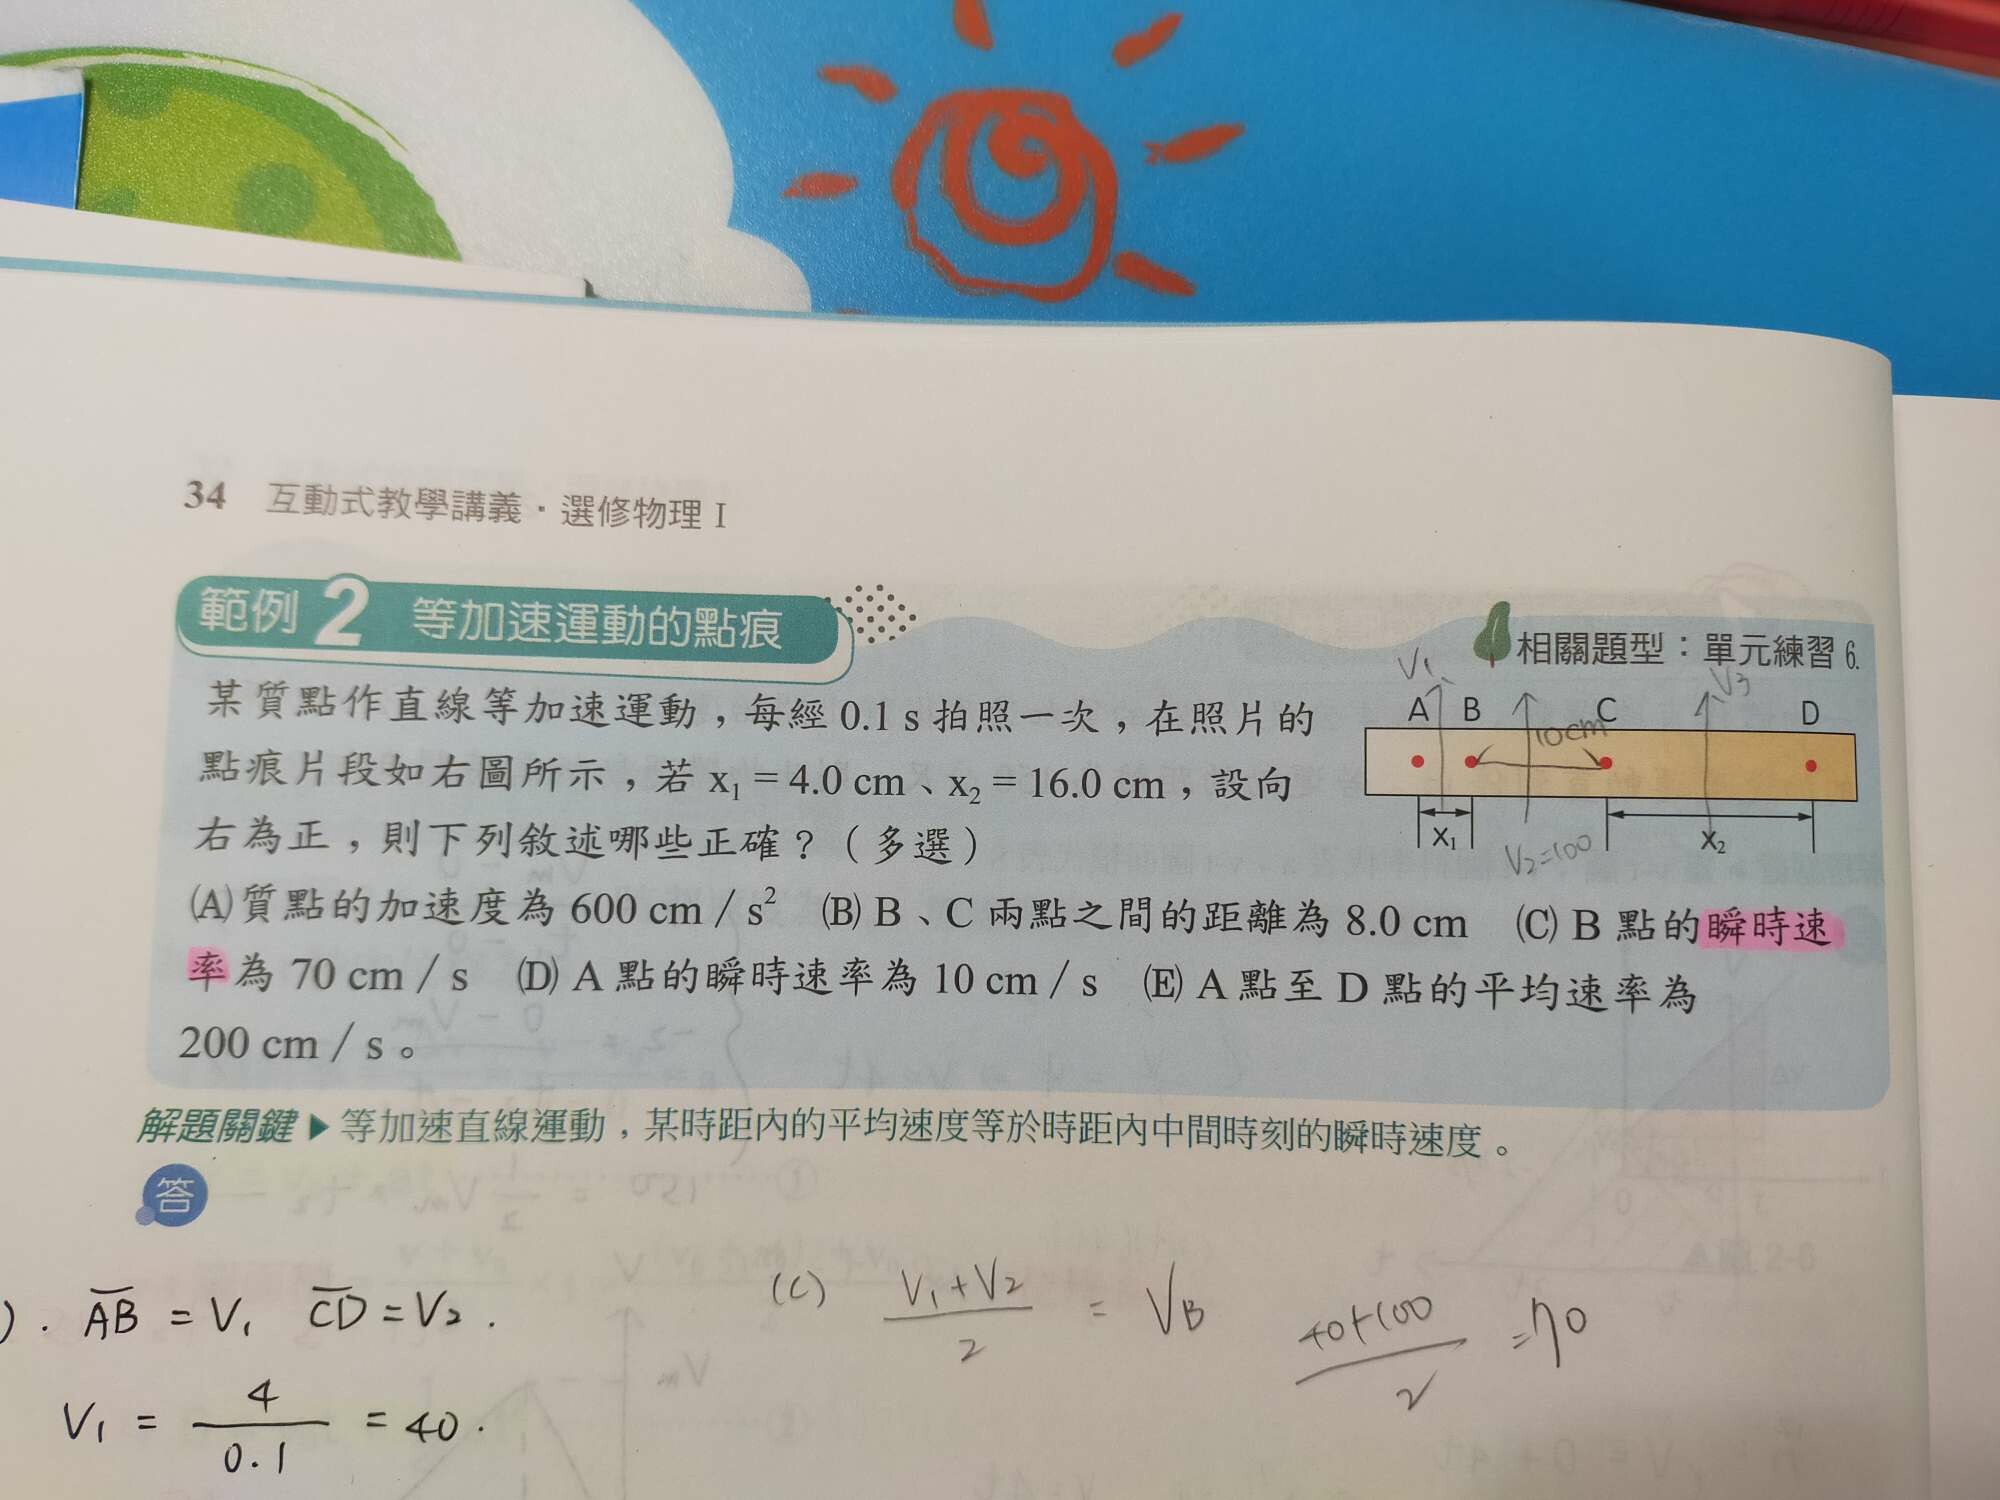 34 互動式教學講義・選修物理 I
範例 2 等加速運動的點痕
相關題型：單元練習 6.
某質點作直線等加速運動，每經 0.1 s 拍照一次，在照片的
點痕片段如右圖所示，若 x₁ = 4.0 cm、x₂ = 16.0 cm，設向
右為正，則下列敘述哪些正確？（多選）
V₁ V₃
A B C D
10cm
x₁ x₂
V₂=100
(A)質點的加速度為 600 cm / s² (B) B、C 兩點之間的距離為 8.0 cm (C) B 點的瞬時速
率為 70 cm / s (D) A 點的瞬時速率為 10 cm / s (E) A 點至 D 點的平均速率為
200 cm / s。
解題關鍵▶等加速直線運動，某時距內的平均速度等於時距內中間時刻的瞬時速度。
答
). AB = V₁ CD = V₂ .
(C) V₁+V₂ / 2 = VB 40+100 / 2 = 70
V₁ = 4 / 0.1 = 40 .